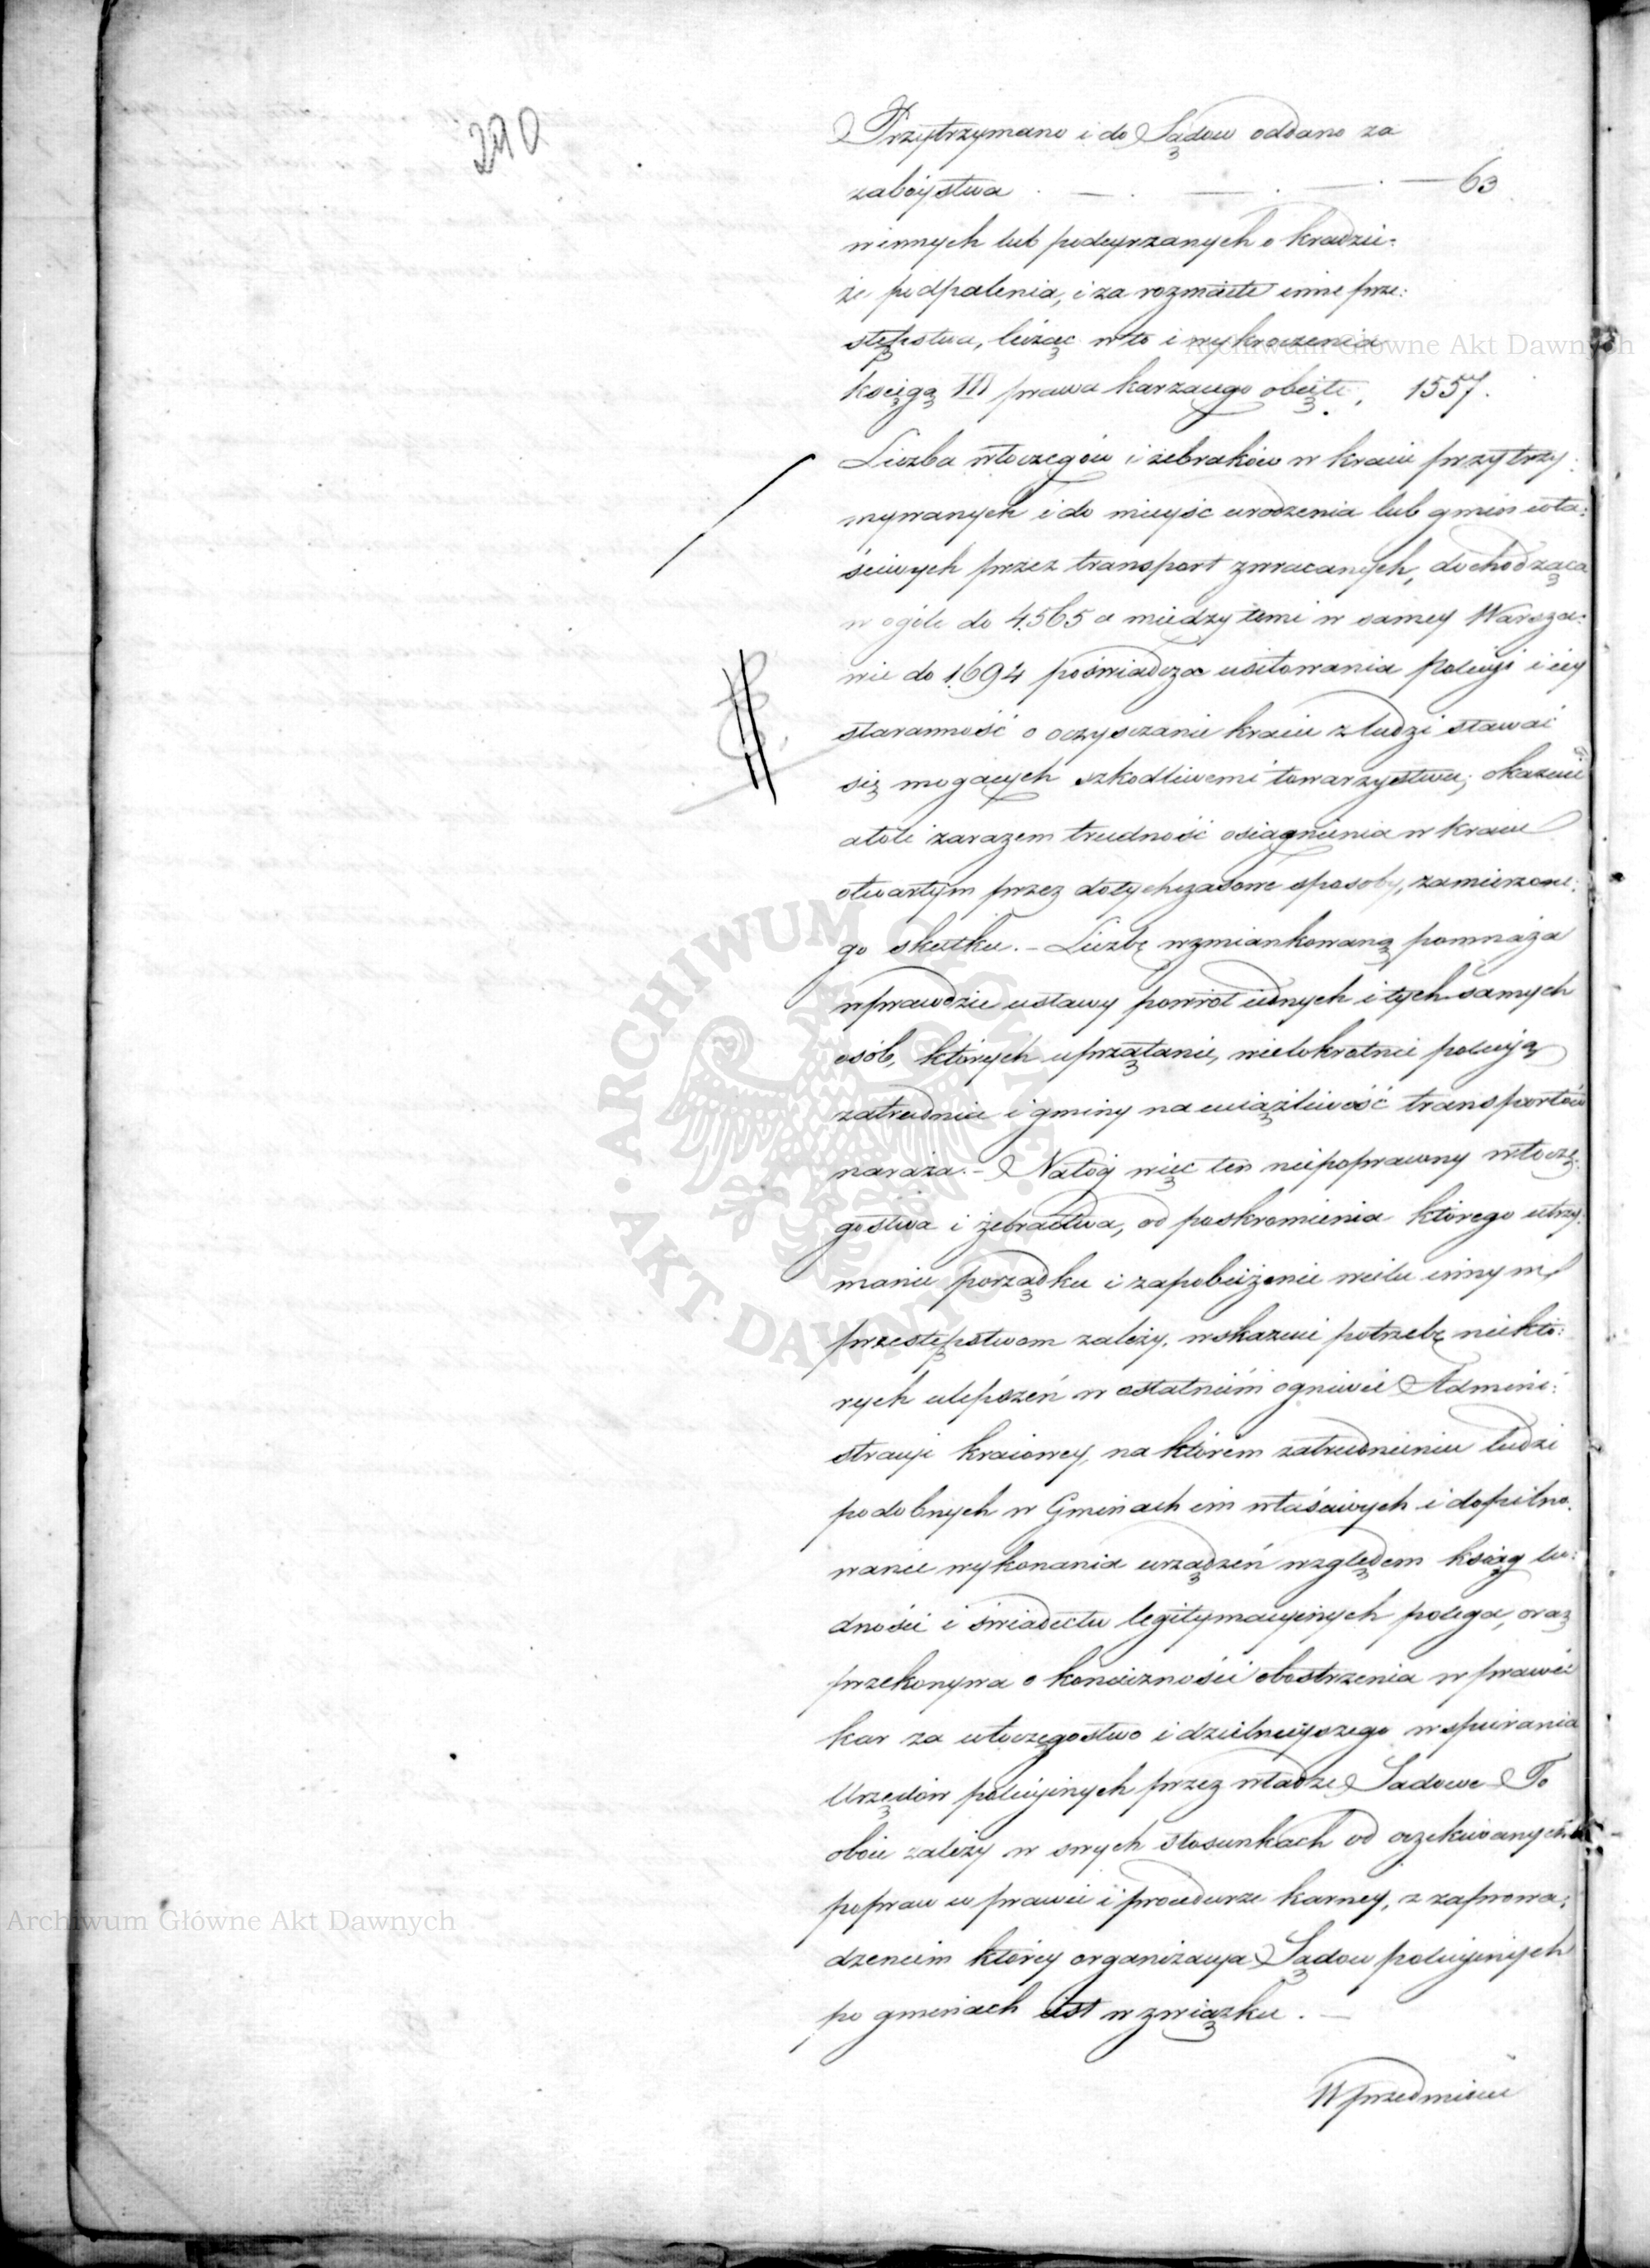 290
Przytrzymano i do Sądów oddano za
zabóystwa . — . — . — . — 63
winnych lub podeyrzanych o kradzie:
że podpalenia, i za rozmaite inne prze:
stępstwa, licząc w to i wykroczenia
księgą III prawa karzącego obięte . 1557.
Liczba włóczęgów i żebraków w kraiu przytrzy:
mywanych i do mieysc urodzenia lub gmin wła:
ściwych przez transport zwracanych, dochodząca
w ogóle do 4.565 a miedzy temi w samey Warsza:
wie do 1.694 poświadcza usiłowania Policyi i iey
staranność o oczyszczenie kraiu z ludzi stawać
się mogących szkodliwemi towarzystwu; okazuie
atoli zarazem trudność osiągnienia w kraiu
otwartym przez dotychczasowe sposoby, zamierzone:
go skutku. – Liczbę wzmiankowaną pomnaża
wprawdzie ustawy powrót iednych i tych samych
osób, których uprzątanie, wielokrotnie policyą
zatrudnia i gminy na uciążliwość transportów
naraża. – Nałóg więc ten niepoprawny włóczę:
gostwa i żebractwa, od poskromienia którego utrzy:
manie porządku i zapobieżenie wielu innym
przestępstwom zależy, wskazuie potrzebę niektó:
rych ulepszeń w ostatniém ogniwie Admini:
stracyi kraiowey, na którem zatrudnieniu ludzi
podobnych w Gminach im właściwych i dopilno:
wanie wykonania urządzeń względem ksiąg lu:
dności i świadectw legitymacyinych polega, oraz
przekonywa o konieczności obostrzenia w prawie
kar za włóczęgostwo i dzielnieyszego wspierania
Urzędów policyinych przez władze Sądowe To
oboie zależy w swych stosunkach od oczekiwanych
popraw w prawie i procedurze karney, z zaprowa:
dzeniem którey organizacya Sądów policyinych
po gminach iest w związku. —
W przedmiocie
Archiwum Główne Akt Dawnych
Archiwum Główne Akt Dawnych
ARCHIWUM GŁÓWNE · AKT DAWNYCH ·